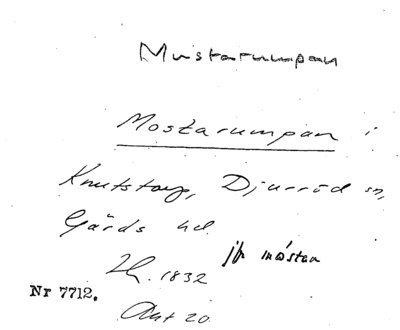 Mustarumpan
Mostarumpan i
Knutstorp, Djurröd sn,
Gärds hd.
jfr mosten
1832
Nr 7712.
Akt 20